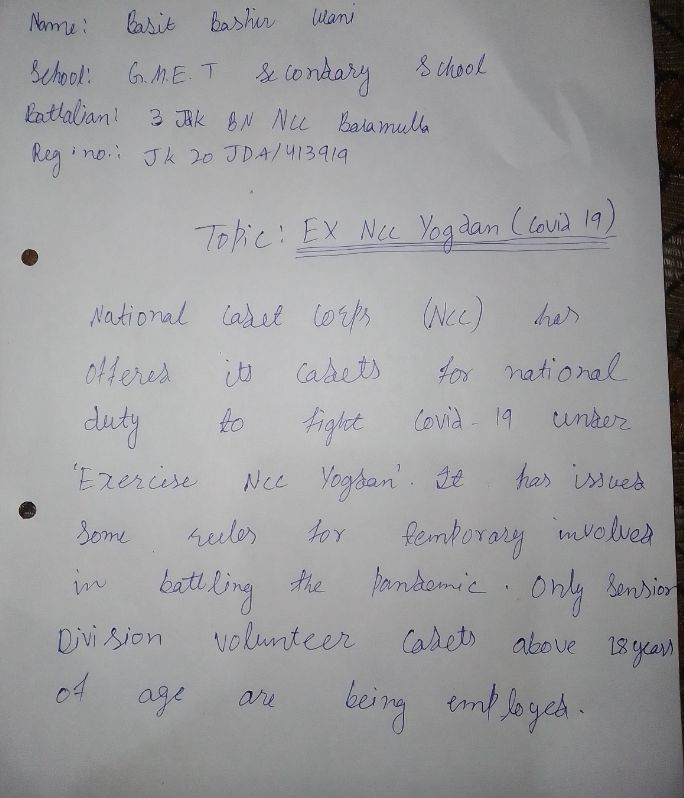 Name: Basit Bashir Wani
School: G.M.E.T Secondary School
Battalian: 3 J&K BN NCC Baramulla
Reg. no.: JK 20 JDA/413919
Topic: EX NCC Yogdan (Covid 19)
National Cadet Corps (NCC) has
offered its cadets for national
duty to fight Covid-19 under
'Exercise NCC Yogdan'. It has issued
Some rules for temporary involved
in battling the pandemic. Only Sension
Division volunteer Cadets above 18 years
of age are being employed.